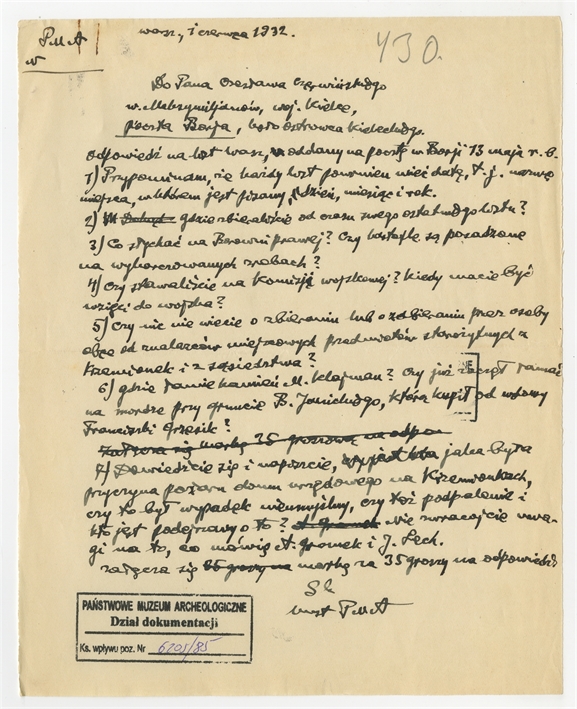 PMA
w
Warsz., 1 czerwca 1932.
430.
Do Pana Czesława Czerwińskiego
w Maksymiljanów, woj. Kielce,
poczta Borja, koło Ostrowca Kieleckiego.
Odpowiedź na list wasz, oddany na pocztę w Borji 13 maja r. b.
1) Przypominam, że każdy list powinien mieć datę, t. j. nazwę
miejsca, w którem jest pisany, dzień, miesiąc i rok.
2) gdzie zbieraliście od czasu swego ostatniego listu?
3) Co słychać na Borowni prawej? Czy kartofle są posadzone
na wykarczowanych zrębach?
4) Czy stawaliście na Komisji wojskowej? Kiedy macie być
wzięci do wojska?
5) Czy nic nie wiecie o zbieraniu lub odbieraniu przez osoby
obce od znalazców miejscowych przedmiotów starożytnych z
Krzemionek i z sąsiedztwa?
6) gdzie łamie kamień M. Klajman? Czy już zaczął łamać
na mordze przy gruncie B. Janickiego, którą kupił od wdowy
Franciszki Grzesik?
Załącza się markę 35 groszową na odpow
7) Dowiedzcie się i napiszcie, jaka była
przyczyna pożaru domu urzędowego na Krzemionkach,
czy to był wypadek nieumyślny, czy też podpalenie i
kto jest podejrzany o to? A. Gromek Nie zwracajcie uwa-
gi na to, co mówią A. Gromek i J. Lech.
Załącza się markę za 35 groszy na odpowiedź
PMA
PAŃSTWOWE MUZEUM ARCHEOLOGICZNE
Dział dokumentacji
Ks. wpływu poz. Nr 6201/85